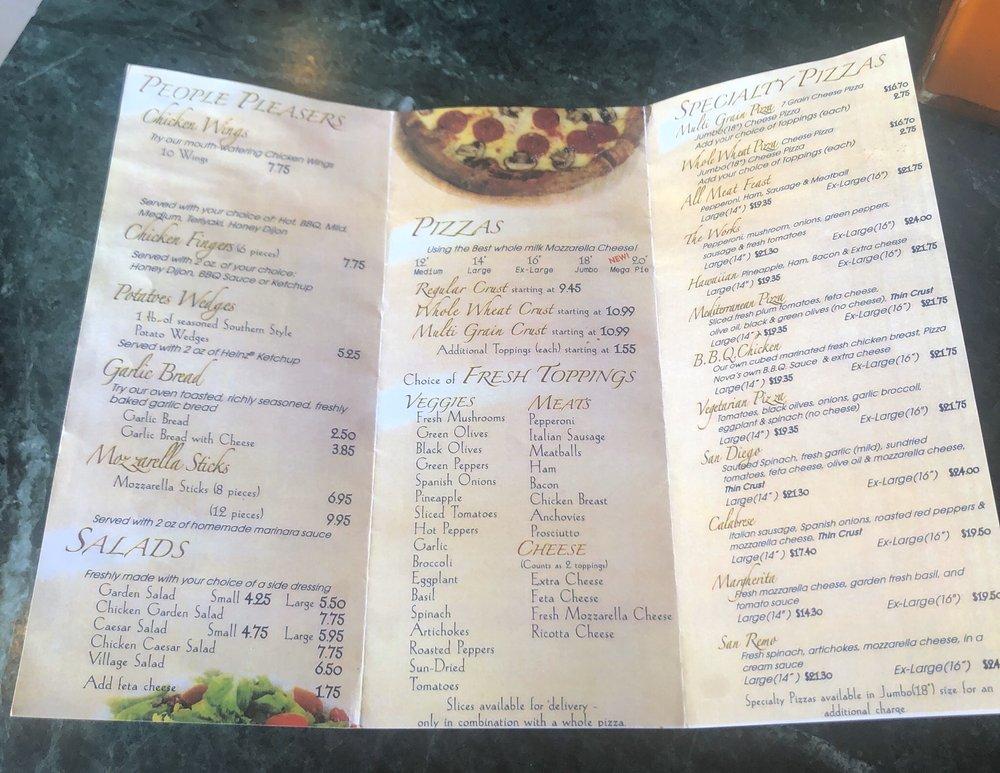 PEOPLE PLEASERS
Chicken Wings
Try our mouth-watering Chicken Wings
10 Wings 7.75
Served with your choice of: Hot, BBQ, Mild,
Medium, Teriyaki, Honey Dijon
Chicken Fingers (6 pieces) 7.75
Served with 2 oz. of your choice:
Honey Dijon, BBQ Sauce or Ketchup
Potatoes Wedges
1 lb. of seasoned Southern Style
Potato Wedges 5.25
Served with 2 oz of Heinz® Ketchup
Garlic Bread
Try our oven toasted, richly seasoned, freshly
baked garlic bread
Garlic Bread 2.50
Garlic Bread with Cheese 3.85
Mozzarella Sticks
Mozzarella Sticks (8 pieces) 6.95
(12 pieces) 9.95
Served with 2 oz of homemade marinara sauce
SALADS
Freshly made with your choice of a side dressing
Garden Salad Small 4.25 Large 5.50
Chicken Garden Salad 7.75
Caesar Salad Small 4.75 Large 5.95
Chicken Caesar Salad 7.75
Village Salad 6.50
Add feta cheese 1.75
PIZZAS
Using the Best whole milk Mozzarella Cheese!
NEW!
12" 14" 16" 18" 20"
Medium Large Ex-Large Jumbo Mega Pie
Regular Crust starting at 9.45
Whole Wheat Crust starting at 10.99
Multi Grain Crust starting at 10.99
Additional Toppings (each) starting at 1.55
Choice of FRESH TOPPINGS
VEGGIES
Fresh Mushrooms
Green Olives
Black Olives
Green Peppers
Spanish Onions
Pineapple
Sliced Tomatoes
Hot Peppers
Garlic
Broccoli
Eggplant
Basil
Spinach
Artichokes
Roasted Peppers
Sun-Dried
Tomatoes
MEATS
Pepperoni
Italian Sausage
Meatballs
Ham
Bacon
Chicken Breast
Anchovies
Prosciutto
CHEESE
(Counts as 2 toppings)
Extra Cheese
Feta Cheese
Fresh Mozzarella Cheese
Ricotta Cheese
Slices available for delivery -
only in combination with a whole pizza.
SPECIALTY PIZZAS
Multi Grain Pizza 7 Grain Cheese Pizza
Jumbo(18") Cheese Pizza $16.70
Add your choice of toppings (each) 2.75
Whole Wheat Pizza Cheese Pizza
Jumbo(18") Cheese Pizza $16.70
Add your choice of toppings (each) 2.75
All Meat Feast
Pepperoni, Ham, Sausage & Meatball
Large(14") $19.35 Ex-Large(16") $21.75
The Works
Pepperoni, mushroom, onions, green peppers,
sausage & fresh tomatoes
Large(14") $21.30 Ex-Large(16") $24.00
Hawaiian Pineapple, Ham, Bacon & Extra cheese
Large(14") $19.35 Ex-Large(16") $21.75
Mediterranean Pizza
Sliced fresh plum tomatoes, feta cheese,
olive oil, black & green olives (no cheese), Thin Crust
Large(14") $19.35 Ex-Large(16") $21.75
B.B.Q Chicken
Our own cubed marinated fresh chicken breast, Pizza
Nova's own B.B.Q. Sauce & extra cheese
Large(14") $19.35 Ex-Large(16") $21.75
Vegetarian Pizza
Tomatoes, black oilves, onions, garlic broccoli,
eggplant & spinach (no cheese)
Large(14") $19.35 Ex-Large(16") $21.75
San Diego
Sauteed Spinach, fresh garlic (mild), sundried
tomatoes, feta cheese, olive oil & mozzarella cheese,
Thin Crust
Large(14") $21.30 Ex-Large(16") $24.00
Calabrese
Italian sausage, Spanish onions, roasted red peppers &
mozzarella cheese, Thin Crust
Large(14") $17.40 Ex-Large(16") $19.50
Margherita
Fresh mozzarella cheese, garden fresh basil, and
tomato sauce
Large(14") $14.30 Ex-Large(16") $19.50
San Remo
Fresh spinach, artichokes, mozzarella cheese, in a
cream sauce
Large(14") $21.30 Ex-Large(16") $24
Specialty Pizzas available in Jumbo(18") size for an
additional charge.